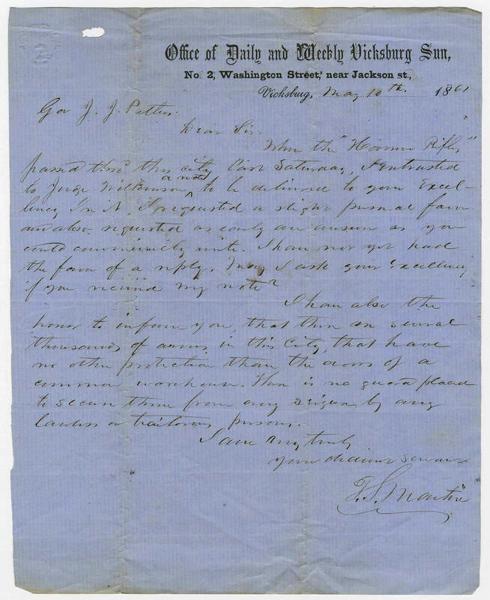 Office of Daily and Weekly Vicksburg Sun,
No. 2, Washington Street, near Jackson st,
Vicksburg, May 10th 1861
Gov J. J. Pettus.
Dear Sir.
When the "Rifles"
passed thro' this city last Saturday, I entrusted
to Judge a note, to be delivered to your Excel-
lency. In it I requested a slight personal favor
and also requested as early an answer as you
could conveniently write. I have not yet had
the favor of a reply. May I ask your Excellency
if you received my note?
I have also the
honor to inform you, that there are several
thousands of arms in this City, that have
no other protection than the doors of a
common warehouse. There is no guard placed
to secure them from any seizure by any
lawless or traitorous persons.
I am very truly
Your obedient servant